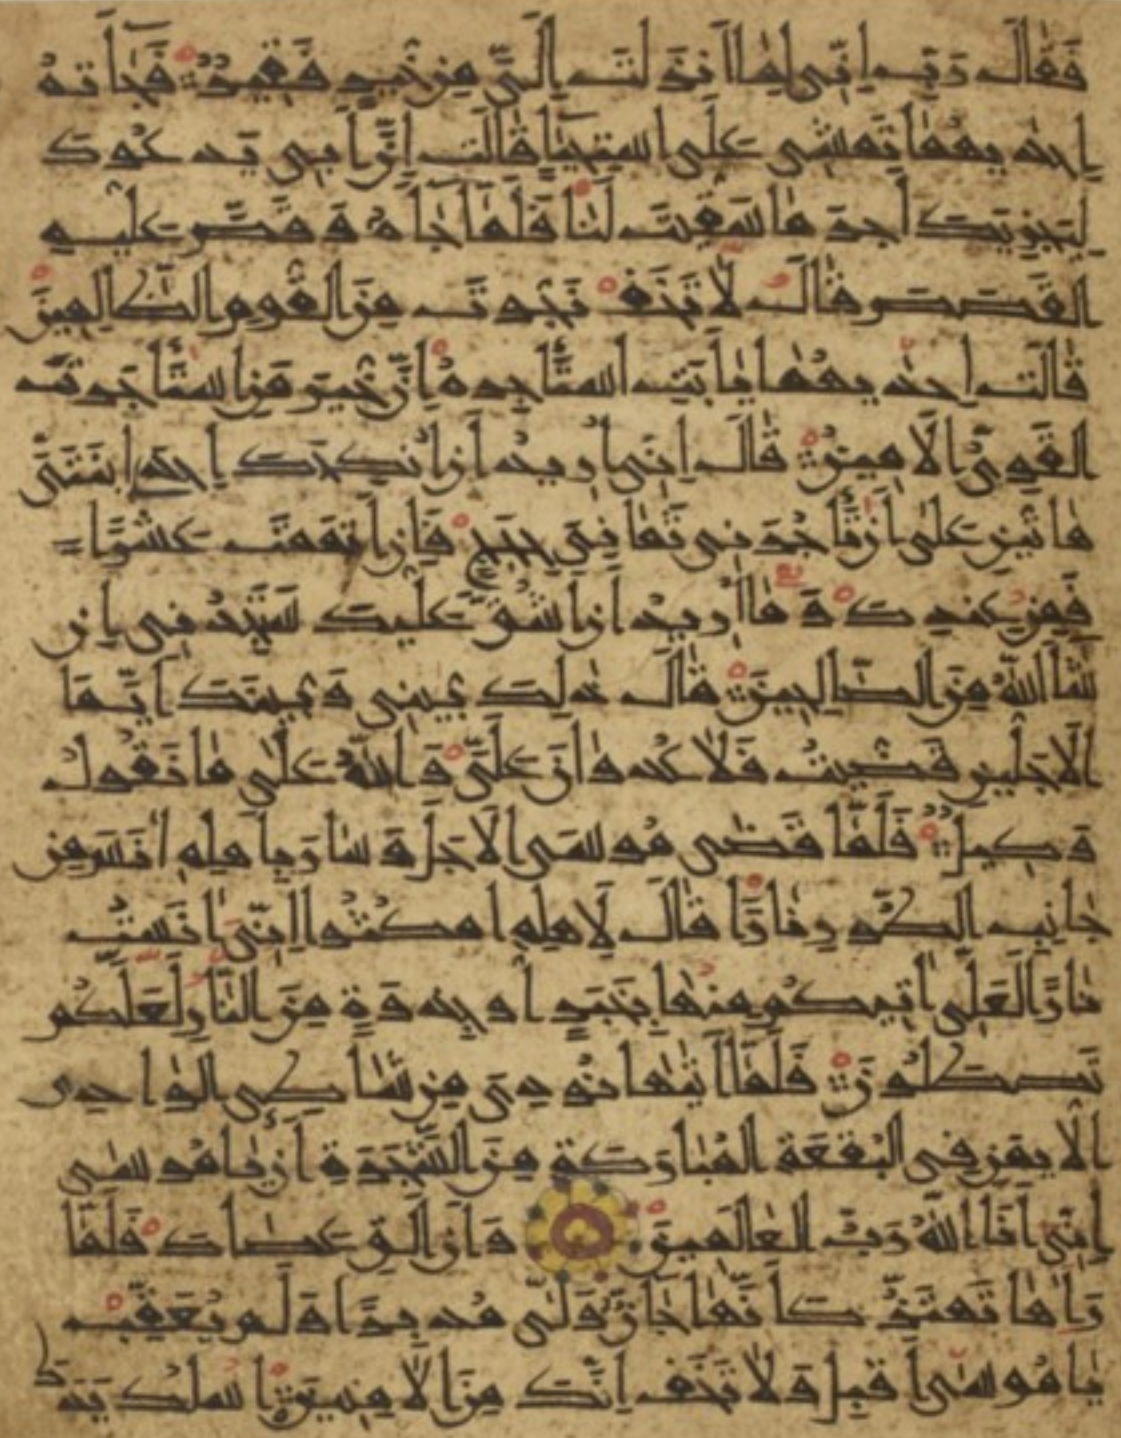 فَقَالَ رَبِّ اِنِّى لِمَا اَنْزَلْتَ اِلَىَّ مِنْ خَيْرٍ فَقِيرٌ فَجَاَتْهُ
اِحْدٰيهُمَا تَمْشِى عَلَى اسْتِحْيَاٍ قَالَتْ اِنَّ اَبِى يَدْعُوكَ
لِيَجْزِيَكَ اَجْرَ مَا سَقَيْتَ لَنَا فَلَمَّا جَاهُ وَ قَصَّ عَلَيْهِ
الْقَصَصَ قَالَ لَا تَخَفْ نَجَوْتَ مِنَ الْقَوْمِ الظَّالِمِينَ
قَالَتْ اِحْدٰيهُمَا يَا اَبَتِ اسْتَاْجِرْهُ اِنَّ خَيْرَ مَنِ اسْتَاْجَرْتَ
الْقَوِىُّ الْاَمِينُ قَالَ اِنِّى اُرِيدُ اَنْ اُنْكِحَكَ اِحْدَى ابْنَتَىَّ
هَاتَيْنِ عَلٰى اَنْ تَاْجُرَنِى ثَمَانِىَ حِجَجٍ فَاِنْ اَتْمَمْتَ عَشْرًا
فَمِنْ عِنْدِكَ وَ مَا اُرِيدُ اَنْ اَشُقَّ عَلَيْكَ سَتَجِدُنِى اِنْ
شَا اللّٰهُ مِنَ الصَّالِحِينَ قَالَ ذٰلِكَ بَيْنِى وَ بَيْنَكَ اَيَّمَا
الْاَجَلَيْنِ قَضَيْتُ فَلَا عُدْوَانَ عَلَىَّ وَ اللّٰهُ عَلٰى مَا نَقُولُ
وَكِيلٌ فَلَمَّا قَضٰى مُوسَى الْاَجَلَ وَ سَارَ بِاَهْلِهِ اٰنَسَ مِنْ
جَانِبِ الطُّورِ نَارًا قَالَ لِاَهْلِهِ امْكُثُوا اِنِّى اٰنَسْتُ
نَارًا لَعَلِّى اٰتِيكُمْ مِنْهَا بِخَبَرٍ اَوْ جِذْوَةٍ مِنَ النَّارِ لَعَلَّكُمْ
تَصْطَلُونَ فَلَمَّا اَتٰيهَا نُودِىَ مِنْ شَاطِىِ الْوَادِى
الْاَيْمَنِ فِى الْبُقْعَةِ الْمُبَارَكَةِ مِنَ الشَّجَرَةِ اَنْ يَا مُوسٰى
اِنِّى اَنَا اللّٰهُ رَبُّ الْعَالَمِينَ وَ اَنْ اَلْقِ عَصَاكَ فَلَمَّا
رَاٰهَا تَهْتَزُّ كَاَنَّهَا جَانٌّ وَلّٰى مُدْبِرًا وَ لَمْ يُعَقِّبْ
يَا مُوسٰى اَقْبِلْ وَ لَا تَخَفْ اِنَّكَ مِنَ الْاٰمِنِينَ اسْلُكْ يَدَكَ